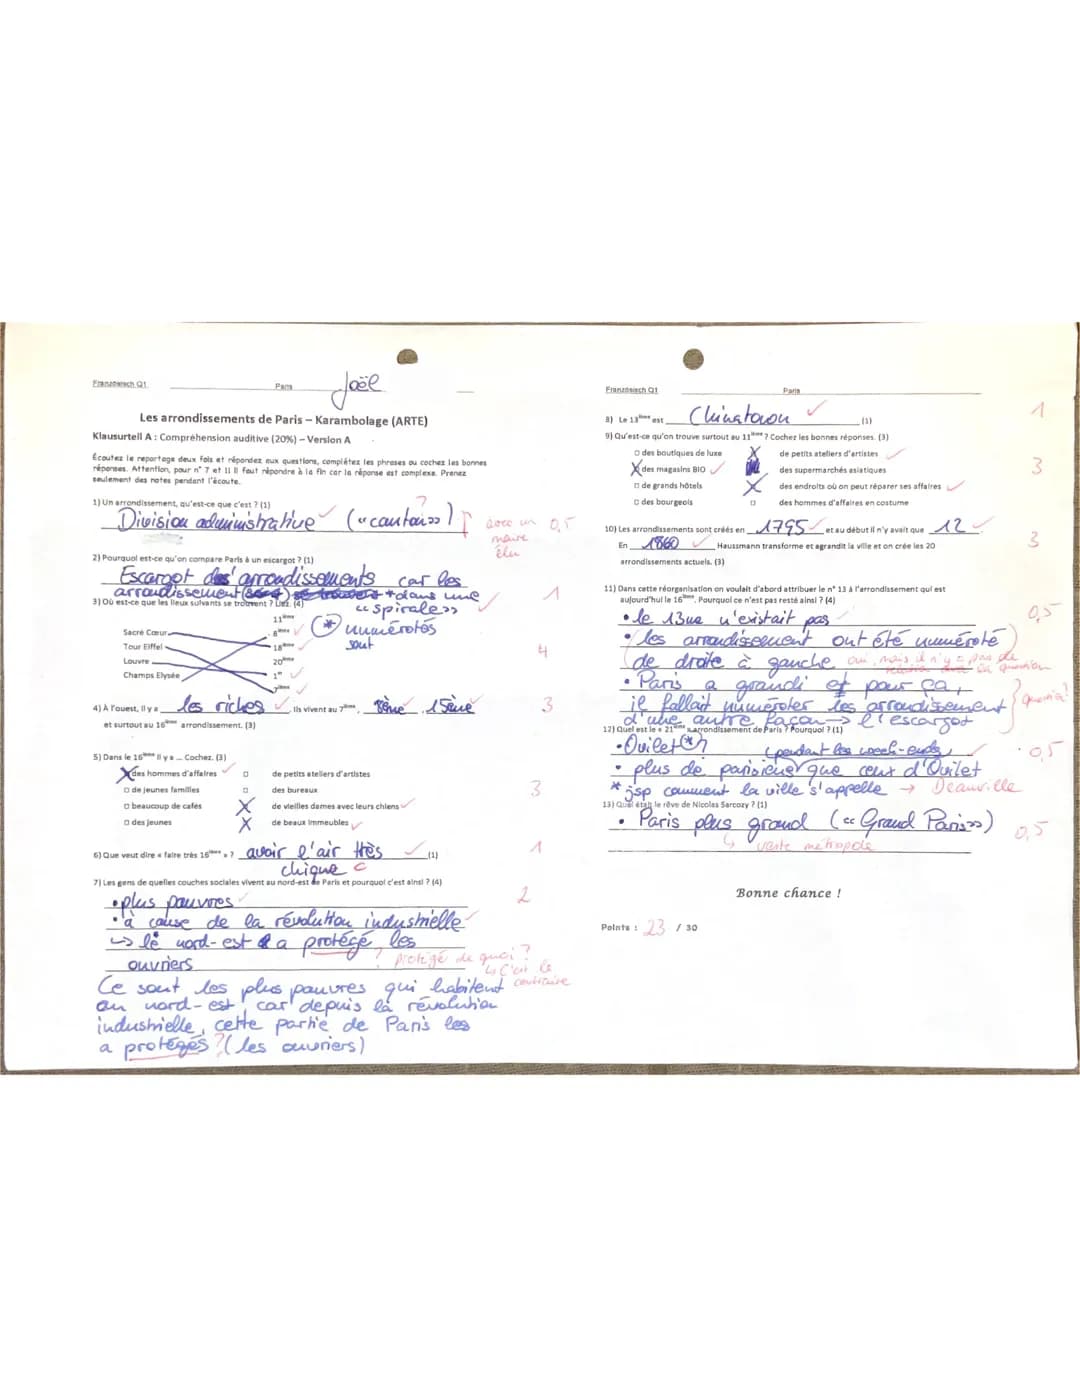 Französisch Q1 Paris Joël
Les arrondissements de Paris – Karambolage (ARTE)
Klausurteil A : Compréhension auditive (20%) – Version A
Écoutez le reportage deux fois et répondez aux questions, complétez les phrases ou cochez les bonnes
réponses. Attention, pour n° 7 et 11 il faut répondre à la fin car la réponse est complexe. Prenez
seulement des notes pendant l'écoute.
1) Un arrondissement, qu'est-ce que c'est ? (1)
?
Division administrative (« canton »)
avec un
maire
élu
0,5
2) Pourquoi est-ce qu'on compare Paris à un escargot ? (1)
Escargot des arrondissements car les
arrondissement * dans une
« spirale »
1
3) Où est-ce que les lieux suivants se trouvent ? Liez. (4)
* numérotés
sont
11ième
Sacré Cœur 8ième
Tour Eiffel 18ième
Louvre 20ième
Champs Elysée 1er
7ième
4
4) À l'ouest, il y a les riches. Ils vivent au 7ième, 8ème, 15ème
et surtout au 16ième arrondissement. (3)
3
5) Dans le 16ième il y a ... Cochez. (3)
des hommes d'affaires de petits ateliers d'artistes
de jeunes familles des bureaux
beaucoup de cafés de vieilles dames avec leurs chiens
des jeunes de beaux immeubles
3
6) Que veut dire « faire très 16ième » ? avoir l'air très (1)
chique c
1
7) Les gens de quelles couches sociales vivent au nord-est de Paris et pourquoi c'est ainsi ? (4)
• plus pauvres
2
• à cause de la révolution industrielle
↳ le nord-est a protégé les
ouvriers
? protégé de quoi ?
↳ C'est le
contraire
Ce sont les plus pauvres qui habitent
au nord-est, car depuis la révolution
industrielle, cette partie de Paris les
a protégés ? (les ouvriers)
Französisch Q1 Paris
8) Le 13ième est Chinatown (1)
1
9) Qu'est-ce qu'on trouve surtout au 11ième ? Cochez les bonnes réponses. (3)
des boutiques de luxe de petits ateliers d'artistes
des magasins BIO des supermarchés asiatiques
de grands hôtels des endroits où on peut réparer ses affaires
des bourgeois des hommes d'affaires en costume
3
10) Les arrondissements sont créés en 1795 et au début il n'y avait que 12.
En 1860 Haussmann transforme et agrandit la ville et on crée les 20
arrondissements actuels. (3)
3
11) Dans cette réorganisation on voulait d'abord attribuer le n° 13 à l'arrondissement qui est
aujourd'hui le 16ième. Pourquoi ce n'est pas resté ainsi ? (4)
• le 13ue n'existait pas
0,5
• les arrondissement ont été numéroté
de droite à gauche
oui, mais il n'y a pas de
• Paris a grandi et pour ça,
il fallait numéroter les arrondissement
d'une autre façon → l'escargot
12) Quel est le « 21ième » arrondissement de Paris ? Pourquoi ? (1)
• Ouilet * (pendant les week-ends)
• plus de parisiens que ceux d'Ouilet
0,5
* jsp comment la ville s'appelle → Deauville
13) Quel était le rêve de Nicolas Sarcozy ? (1)
• Paris plus grand (« Grand Paris »)
↳ vaste métropole
0,5
Bonne chance !
Points : 23 / 30